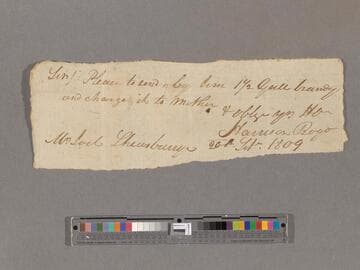 Sir/ Please to send by him 1 1/2 Gall brandy
and charge it to Mother
& oblge yr. Ho
Harrison
Mr. Joel Shrewsbury 20th 1809